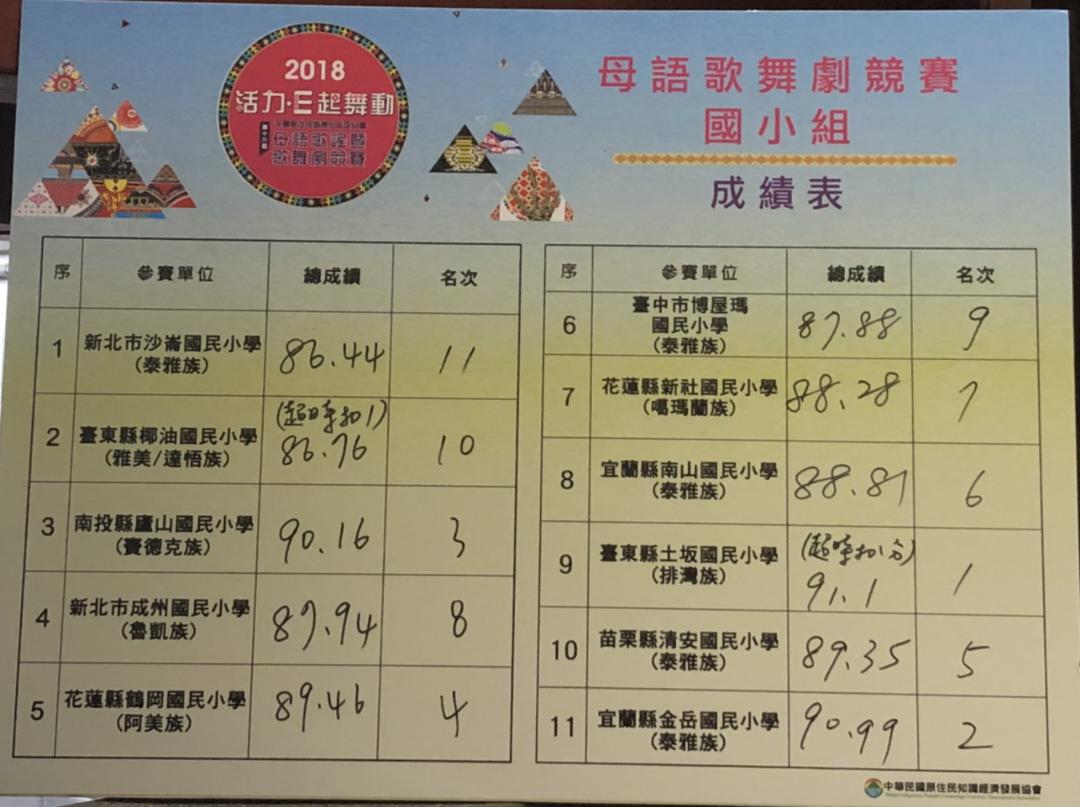 2018
活力‧E起舞動
母語歌謠暨
歌舞劇競賽
母語歌舞劇競賽
國小組
成績表
序 參賽單位 總成績 名次
1 新北市沙崙國民小學 86.44 11
(泰雅族)
(超時扣1)
2 臺東縣椰油國民小學 86.76 10
(雅美/達悟族)
3 南投縣廬山國民小學 90.16 3
(賽德克族)
4 新北市成州國民小學 87.94 8
(魯凱族)
5 花蓮縣鶴岡國民小學 89.46 4
(阿美族)
序 參賽單位 總成績 名次
臺中市博屋瑪
6 國民小學 87.88 9
(泰雅族)
7 花蓮縣新社國民小學 88.28 7
(噶瑪蘭族)
8 宜蘭縣南山國民小學 88.81 6
(泰雅族)
(超時扣1分)
9 臺東縣土坂國民小學 91.1 1
(排灣族)
10 苗栗縣清安國民小學 89.35 5
(泰雅族)
11 宜蘭縣金岳國民小學 90.99 2
(泰雅族)
中華民國原住民知識經濟發展協會